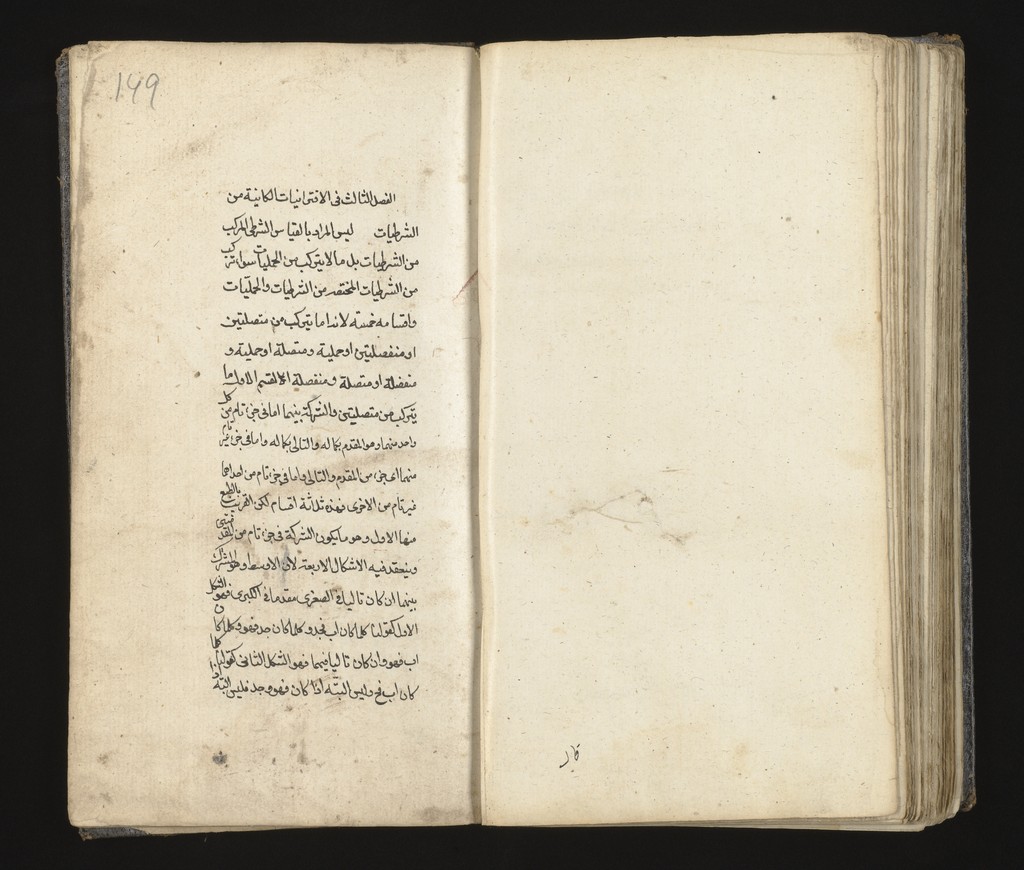 149
الفصل الثالث فى الاقترانيات الكاينة من
الشرطيات ليس المراد بالقياس الشرطى المركب
من الشرطيات بل ما لا يتركب من الحمليات سواء تركب
من الشرطيات المختصه من الشرطيات والحمليات
واقسامه خمسة لانه اما يتركب من متصلتين
او منفصلتين او حملية ومتصلة او حملية و
منفصلة او متصلة ومنفصلة الا القسم الاول ما
يتركب من متصلتين والشركة بينهما اما فى جزء تام من كل
واحد منهما وهو المقدم بكماله والتالى بكماله واما فى جزء غير تام
منهما اى جزء من المقدم والتالى واما فى جزء تام من احداهما
غير تام من الاخرى فهذه ثلاثة اقسام لكن القريب بالطبع
منها الاول وهو ما يكون الشركة فى جزء تام من المقدمتين
وينعقد فيه الاشكال الاربعة لان الاوسط وهو المشترك
بينهما ان كان تاليا فى الصغرى مقدما فى الكبرى فهو الشكل
الاول كقولنا كلما كان اب فجد وكلما كان جد فهو وكلما كان
اب فهو وان كان تاليا فيهما فهو الشكل الثانى كقولنا كلما
كان اب فجد وليس البتة اذا كان فهو وجد فليس البتة اذا